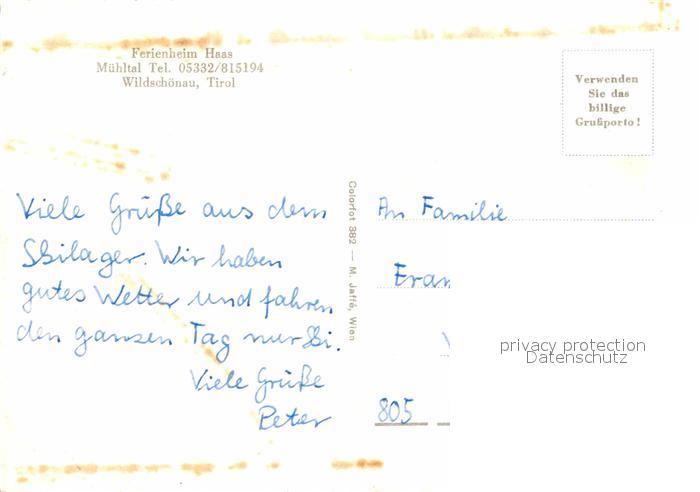 Ferienheim Haas
Mühltal Tel. 05332/815194
Wildschönau, Tirol
Verwenden
Sie das
billige
Grußporto!
Viele Grüße aus dem
Skilager. Wir haben
gutes Wetter und fahren
den ganzen Tag nur Ski.
Viele Grüße
Peter
Colorfot 382 — M. Jaffé, Wien
An Familie
Fran
805
privacy protection
Datenschutz